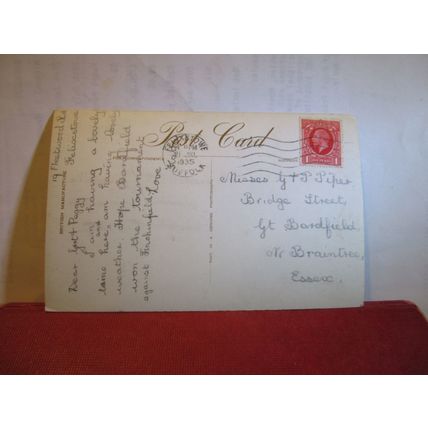 Post Card
BRITISH MANUFACTURE
19 Fleetwood Rd
Felixstowe
Dear Gert & Peggy
I am having a lovely
time here, am having lovely
weather. Hope Bardfield
won the tournament
against Finchingfield. Love
FELIXSTOWE
PM
1935
SUFFOLK
1
Misses G & P Piper
Bridge Street,
Gt Bardfield,
Nr Braintree,
Essex.